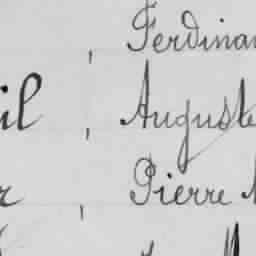 Ferdinan
il , Auguste
r , Pierre